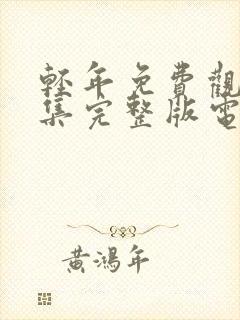 輕年免費觀
集完整版電
黃鴻年